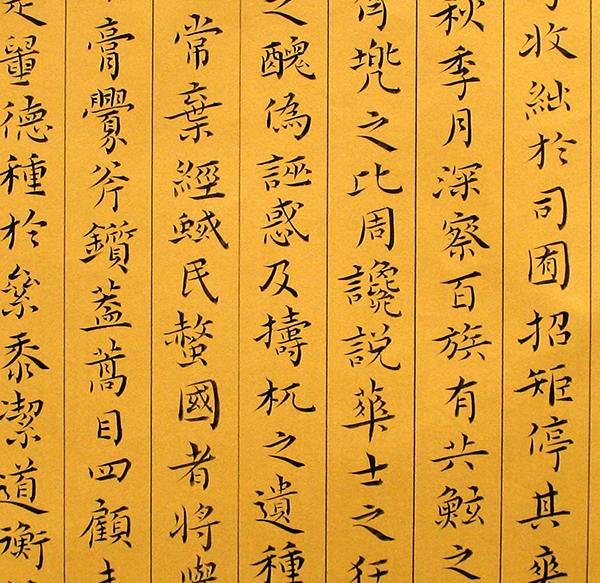 收絀於司囿招矩停其
秋季月深察百族有共鮌之
兜之比周讒説蕐士之狂
之醜偽誣惑及擣杌之遺種
常棄經蜮民螫國者將
膏釁斧鑕蓋蒿目四顧
德種於黍潔道衡